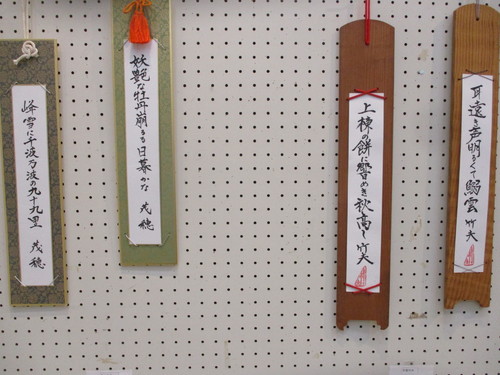 耳遠き声明るくて鰯雲
上棟の餅に響めき秋高し
妖艶な牡丹崩るる日暮かな 茂穂
峰雲に千波万波の九十九里 茂穂